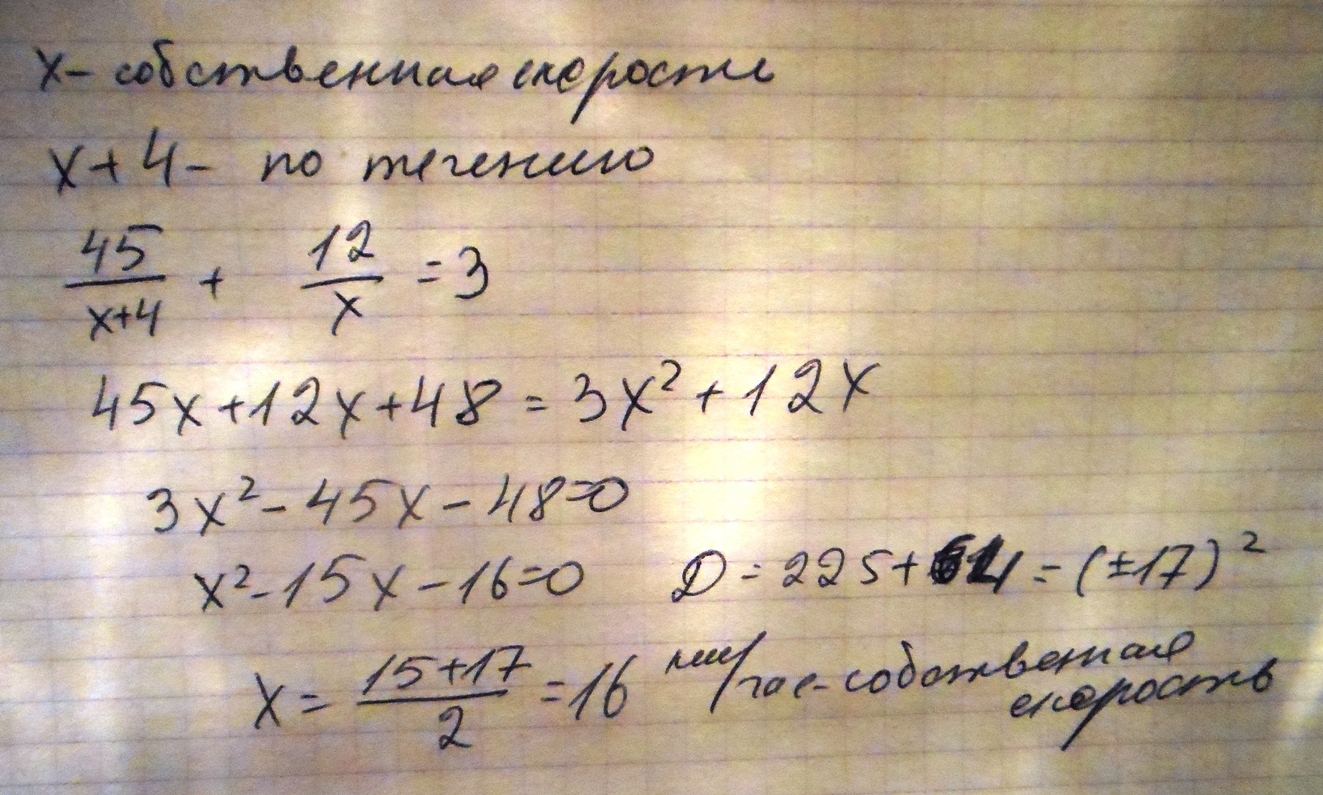 x - собственная скорость
x + 4 - по течению
45/(x+4) + 12/x = 3
45x + 12x + 48 = 3x² + 12x
3x² - 45x - 48 = 0
x² - 15x - 16 = 0 D = 225 + 64 = (±17)²
x = (15+17)/2 = 16 км/час - собственная
скорость